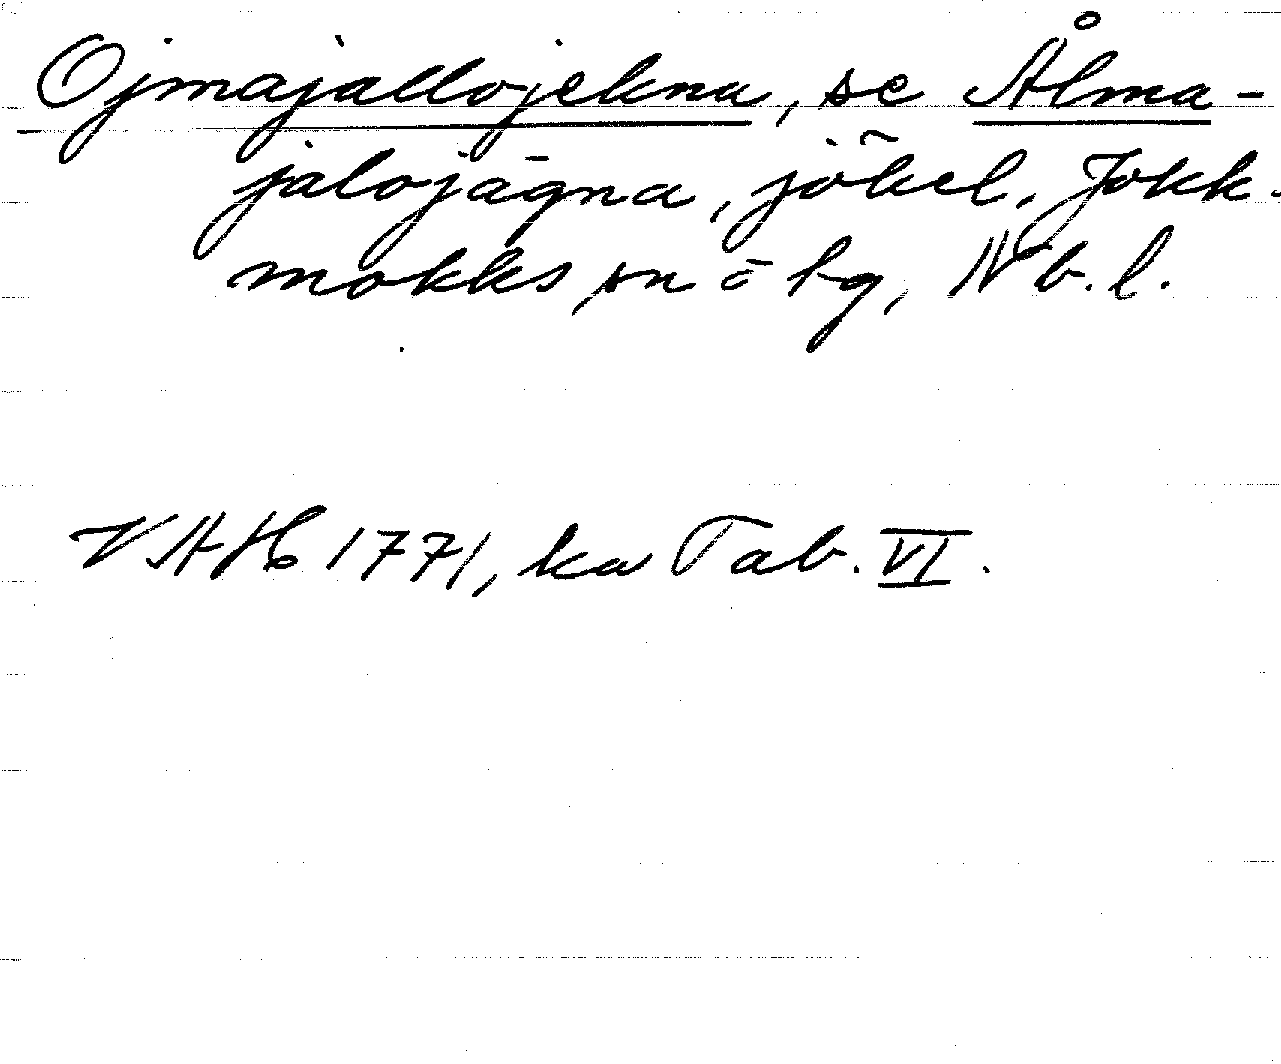 Ojmajallojekna, se Ålma-
jalojägna, jökel, Jokk-
mokks sn o hg, Nb. l.
VAH 1771, ka Tab. VI.